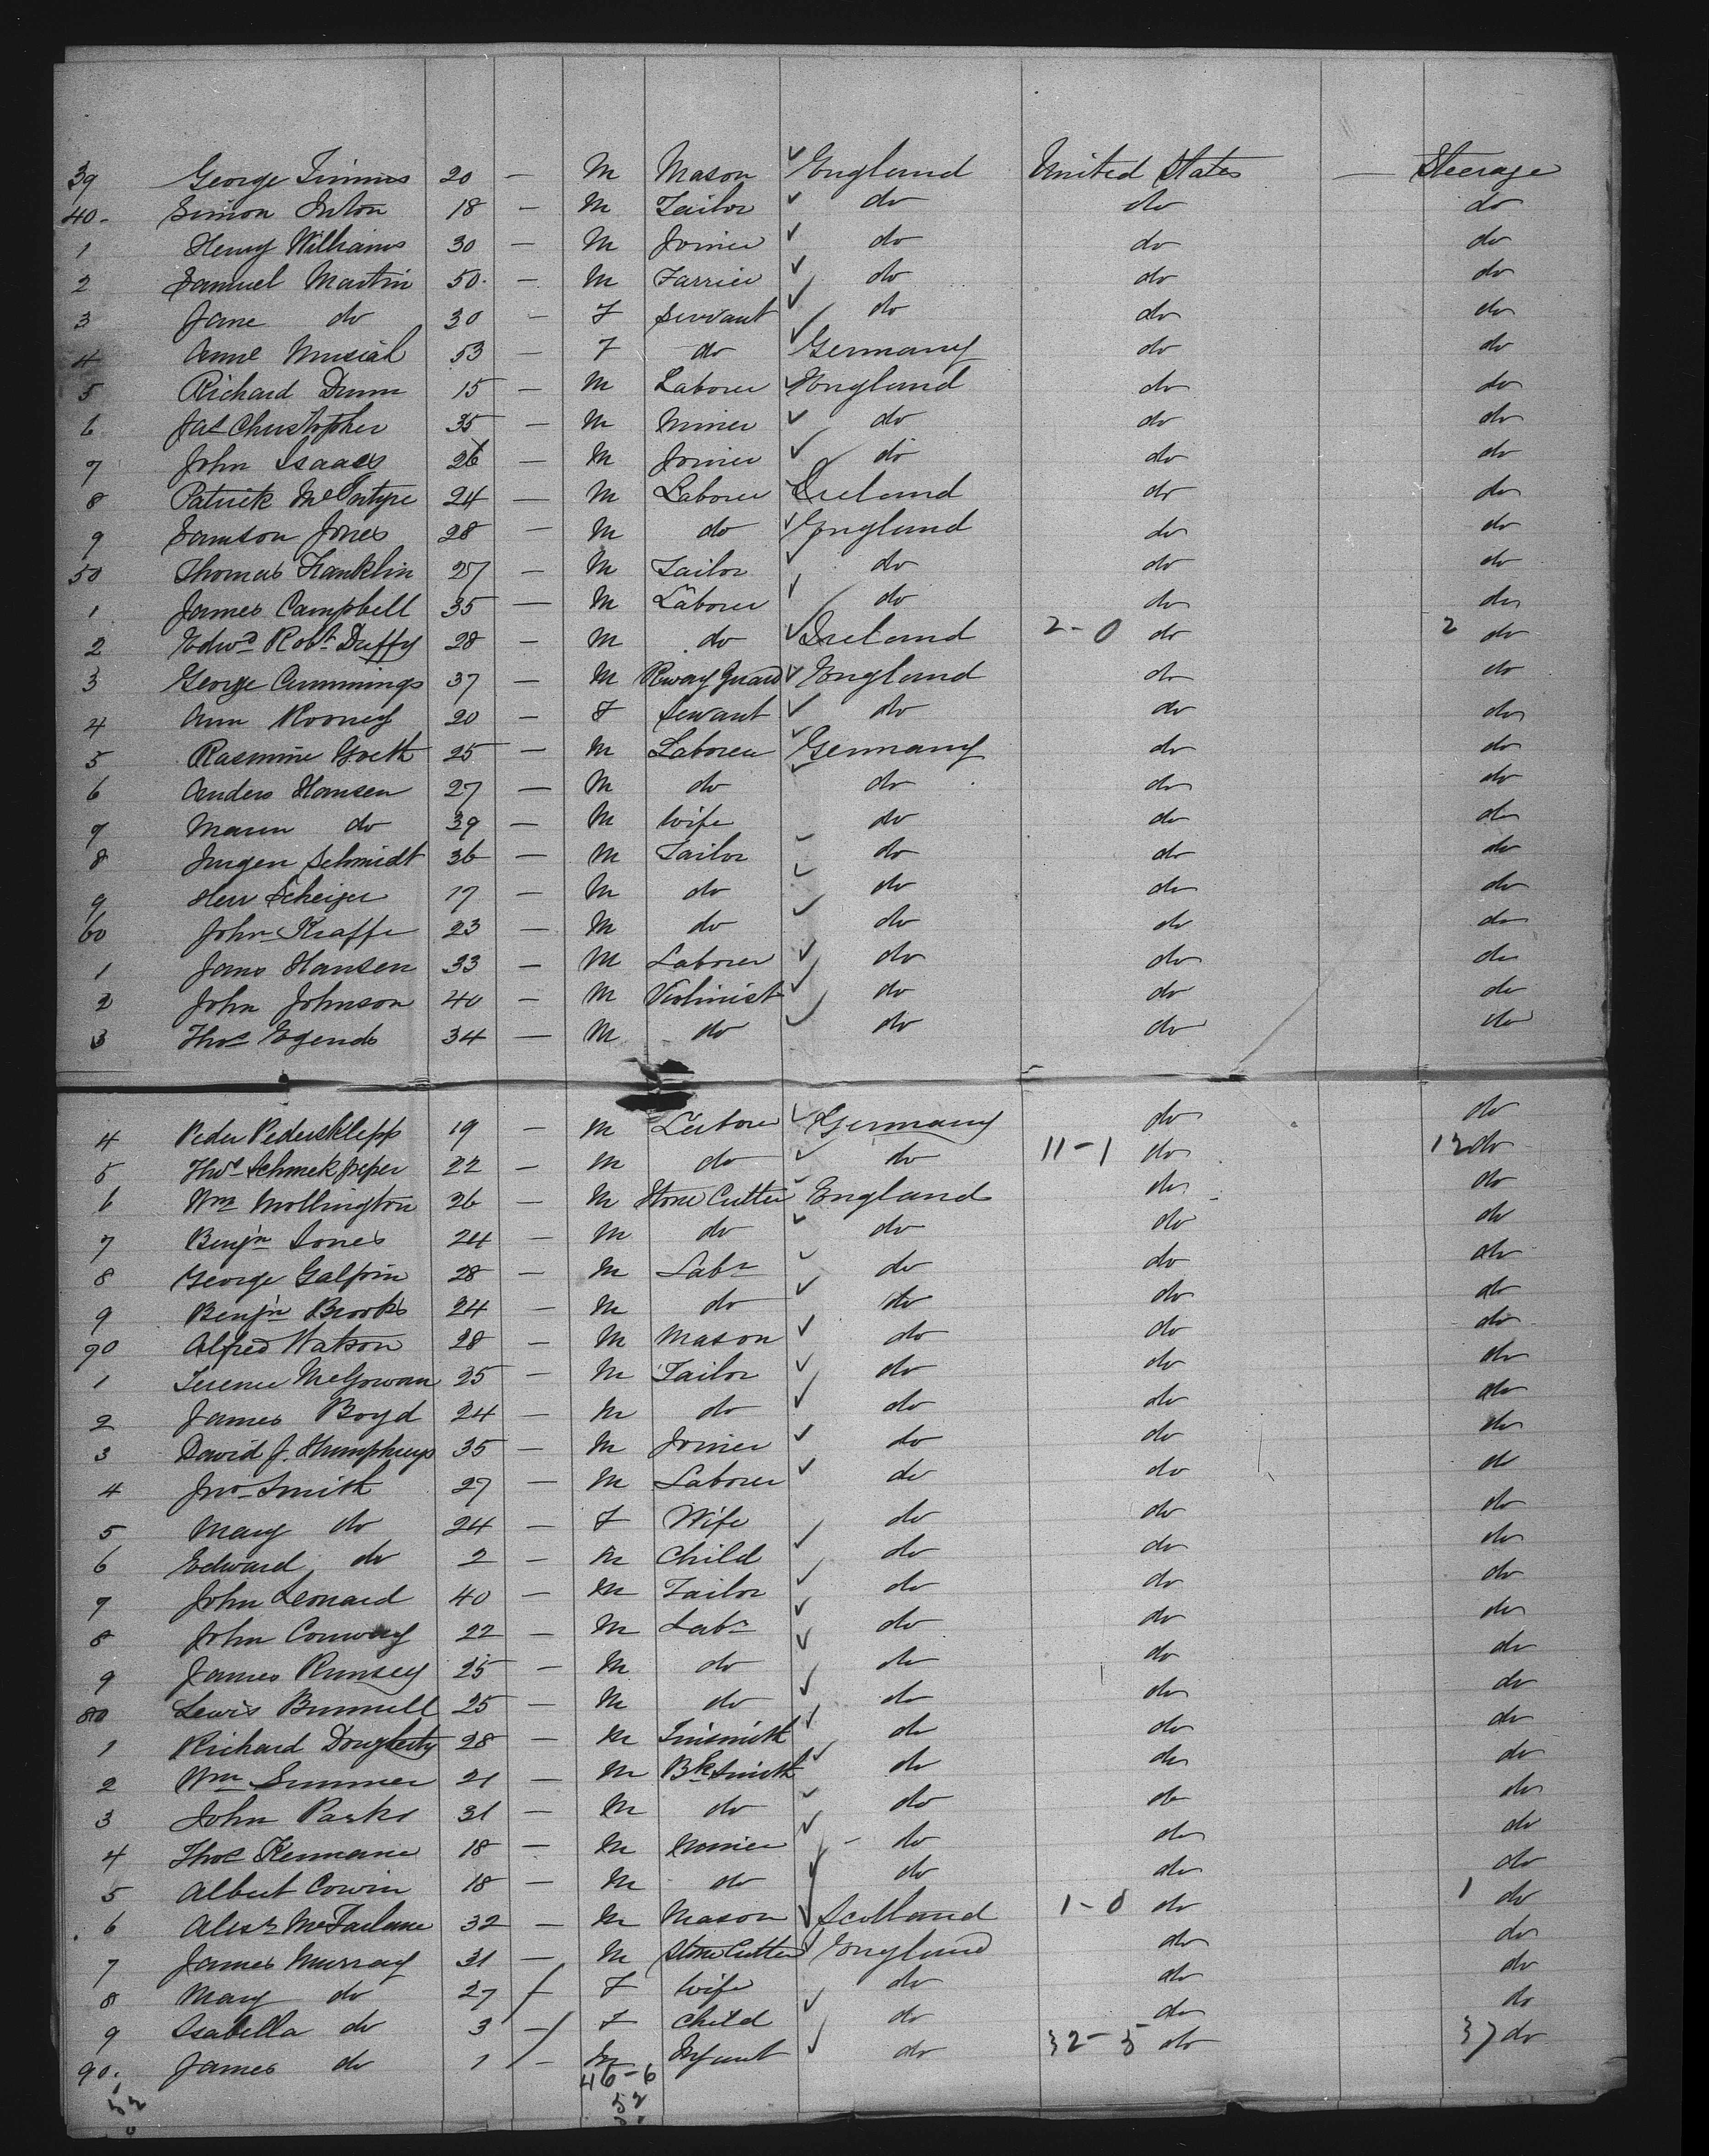 39 George Timms 20 — M Mason ✓ England United States — Steerage
40. Simon Inton 18 — M Tailor ✓ do do do
1 Henry Williams 30 — M Joiner ✓ do do do
2 Samuel Martin 50. — M Farrier ✓ do do do
3 Jane do 30 — F Servant ✓ do do do
4 Anne Musial 53 — F do ✓ Germany do do
5 Richard Dunn 15 — M Laborer ✓ England do do
6 Jas Christopher 35 — M Miner ✓ do do do
7 John Isaacs 26 — M Joiner ✓ do do do
8 Patrick McIntyre 24 — M Laborer ✓ Ireland do do
9 Samson Jones 28 — M do ✓ England do do
50 Thomas Franklin 27 — M Tailor ✓ do do do
1 James Campbell 35 — M Laborer ✓ do do do
2 Edwd Robt Duffy 28 — M do ✓ Ireland 2-0 do 2 do
3 George Cummings 37 — M Rway Guard ✓ England do do
4 Ann Rooney 20 — F Servant ✓ do do do
5 Rasmine Groth 25 — M Laborer ✓ Germany do do
6 Anders Hansen 27 — M do ✓ do do do
7 Maren do 39 — M Wife do do do
8 Jurgen Schmidt 36 — M Tailor ✓ do do do
9 Herr 17 — M do ✓ do do do
60 John Kraffe 23 — M do ✓ do do do
1 Jans Hansen 33 — M Laborer ✓ do do do
2 John Johnson 40 — M Violinist ✓ do do do
3 Thos Egends 34 — M do ✓ do do do
4 Peder Pedersklepp 19 — M Labore ✓ Germany do do
5 Thos 22 — M do ✓ do 11-1 do 12 do
6 Wm Mollington 26 — M Stone Cutter ✓ England do do
7 Benjn Jones 24 — M do ✓ do do do
8 George Galpin 28 — M Labr ✓ do do do
9 Benjn Brooks 24 — M do ✓ do do do
70 Alfred Watson 28 — M Mason ✓ do do do
1 Terence McGowan 25 — M Tailor ✓ do do do
2 James Boyd 24 — M do ✓ do do do
3 David J. Humphreys 35 — M Joiner ✓ do do do
4 Jno Smith 27 — M Laborer ✓ do do do
5 Mary do 24 — F Wife do do do
6 Edward do 2 — M Child ✓ do do do
7 John Leonard 40 — M Tailor ✓ do do do
8 John Conway 22 — M Labr ✓ do do do
9 James Rumsey 25 — M do ✓ do do do
80 Lewis Bunnell 25 — M do ✓ do do do
1 Richard Dougherty 28 — M Tinsmith ✓ do do do
2 Wm Summer 21 — M Bk Smith ✓ do do do
3 John Parks 31 — M do ✓ do do do
4 Thos Kermane 18 — M Miner ✓ do do do
5 Albert Corvin 18 — M do ✓ do do do
6 Alexr McFarlane 32 — M Mason ✓ Scotland 1-0 do 1 do
7 James Murray 31 — M Stone Cutter ✓ England do do
8 Mary do 27 — F Wife do do do
9 Isabella do 3 — F Child ✓ do do do
90. James do 1 — M Infant ✓ do 32-5 do 37 do
46-6
52 52